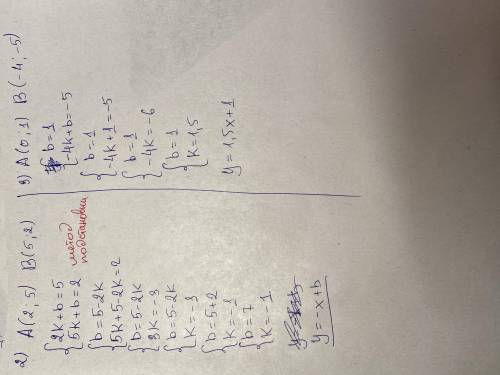 2) A(2; 5) B(5; 2)
{2k+b=5
{5k+b=2
метод
подстановки
{b=5-2k
{5k+5-2k=2
{b=5-2k
{3k=-3
{b=5-2k
{k=-1
{b=5+2
{k=-1
{b=7
{k=-1
y=-x+b
3) A(0; 1) B(-4; -5)
{b=1
{-4k+b=-5
{b=1
{-4k+1=-5
{b=1
{-4k=-6
{b=1
{k=1,5
y=1,5x+1